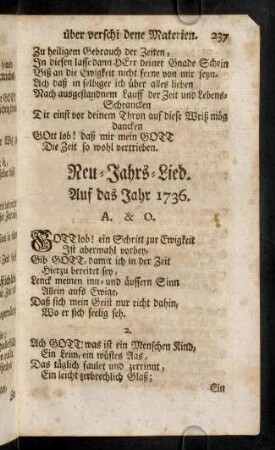 über verschi dene Materien. 237
Zu heiligem Gebrauch der Zeiten,
In diesen lasse dann HErr deiner Gnade Schein
Biß an die Ewigkeit nicht ferne von mir seyn.
Ach daß in selbiger ich über alles lieben
Nach ausgestandnem Lauff der Zeit und Lebens-
Schrancken
Dir einst vor deinem Thron auf diese Weiß mög
dancken
GOtt lob! daß mir mein GOTT
Die Zeit so wohl vertrieben.
Neu-Jahrs-Lied.
Auf das Jahr 1736.
A. & O.
GOTT lob! ein Schritt zur Ewigkeit
Ist abermahl vorbey.
Gib GOTT, damit ich in der Zeit
Hierzu bereitet sey,
Lenck meinen inn- und äussern Sinn
Allein aufs Ewige,
Daß sich mein Geist nur richt dahin,
Wo er sich seelig seh.
2.
Ach GOTT! was ist ein Menschen Kind,
Ein Leim, ein wüstes Aas,
Das täglich faulet und zerrinnt,
Ein leicht zerbrechlich Glaß;
Ein